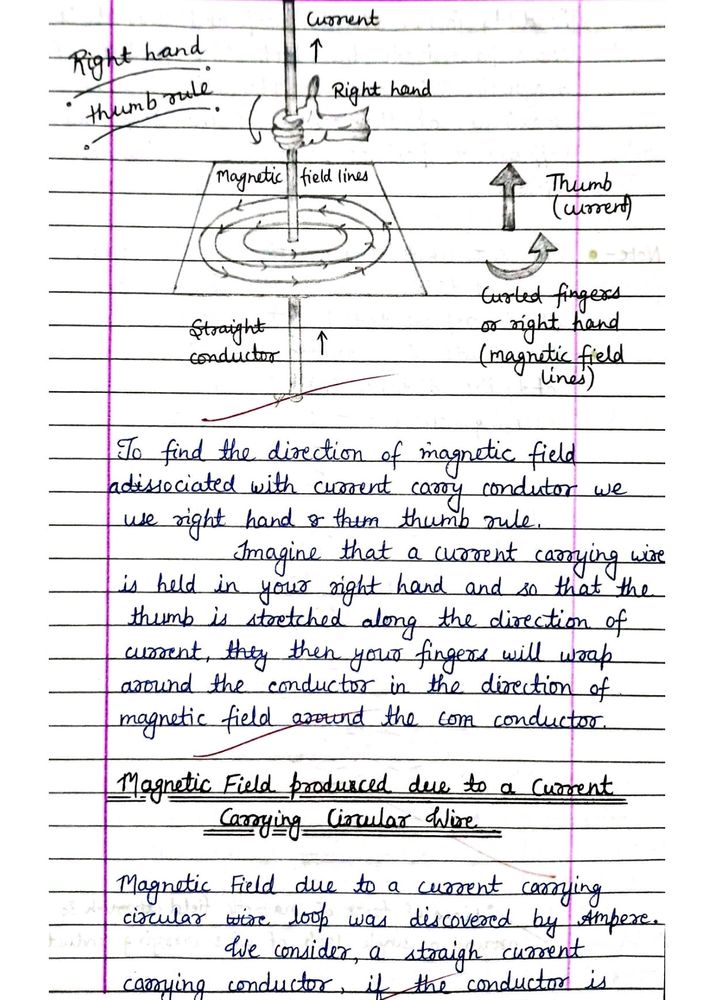 Current
Right hand
thumb rule
Right hand
Magnetic field lines
Thumb
(current)
Curled fingers
or right hand
(magnetic field
lines)
Straight
conductor
To find the direction of magnetic field
adissociated with current carry condutor we
use right hand & them thumb rule.
Imagine that a current carrying wire
is held in your right hand and so that the
thumb is stretched along the direction of
current, they then your fingers will wrap
around the conductor in the direction of
magnetic field around the com conductor.
Magnetic Field produced due to a Current
Carrying Circular Wire
Magnetic Field due to a current carrying
circular wire loop was discovered by Ampere.
We consider, a straigh current
carrying conductor, if the conductor is